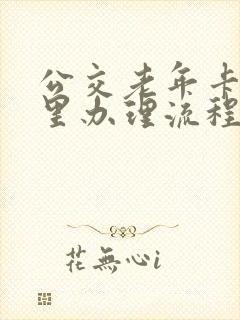 公交老年卡
里办理流程
花無心i